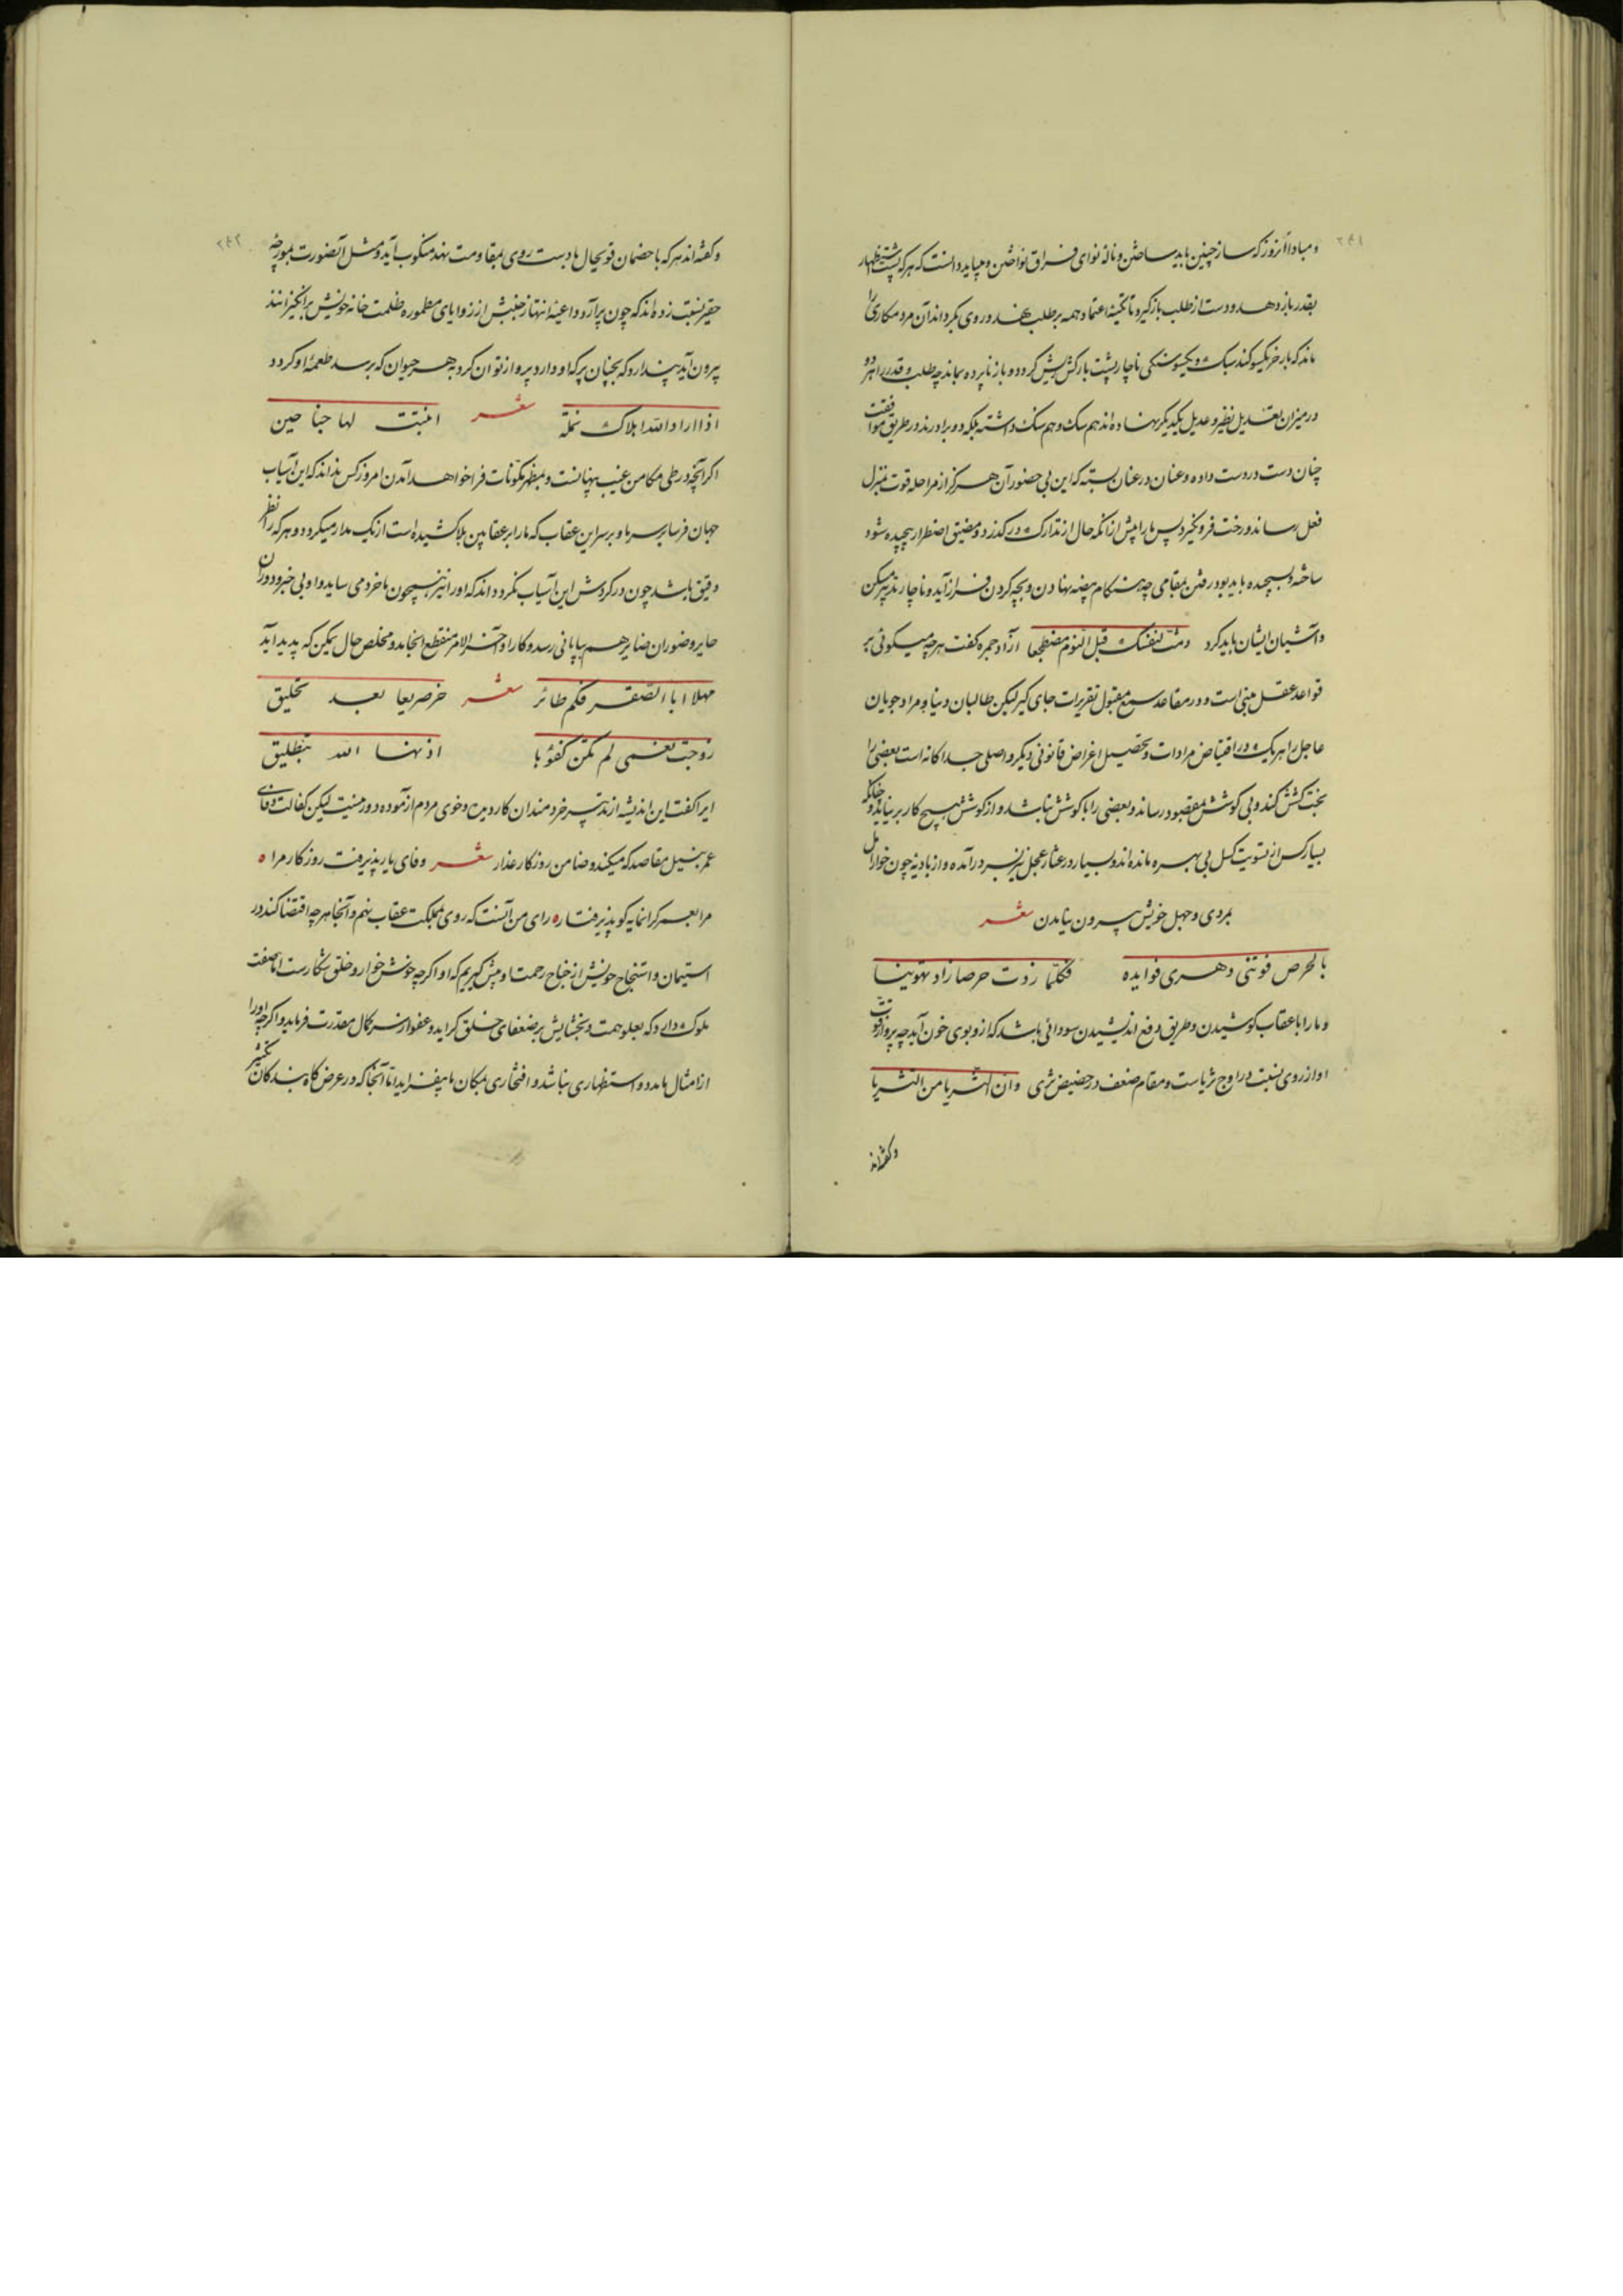 ۲۴۱
و مبادا آنروز که ساز چنین باید ساختن و ناله نوای فراق نواختن و میباید دانست که هر که پشت استظهار
بقدر باز دهد و دست از طلب بازگیرد تا تکیه اعتماد همه بر طلب نهد و روی بگرداند آن مرد مکاری را
ماند که بار خر یکسو کند سبک و یکسو سنگی ناچار پشت بارکش ریش گردد و بار نابرده بماند چه طلب و قدر را هر دو
در میزان تعدیل نظیر و عدیل یکدیگر نهاده اند هم سنگ و هم سنگ داشته بلکه دو برادرند در طریق موافقت
چنان دست در دست داده و عنان در عنان بسته که این بی حضور آن هرگز از مراحله قوت بمنزل
فعل رساند و رخت فرو نگیرد پس ما را پیش از آنکه حال از تدارک درگذرد و مضیق اضطرار پیچیده شود
ساخته و بسیچیده باید بود رفتن بمقامی چه هنگام بیضه نهادن و بچه کردن فراز آید و ناچار تدبیر مسکن
و آشیان ایشان باید کرد دمث لنفسک قبل النوم مضطجعا آزاد چهره گفت هر چه میگوئی بر
قواعد عقل مبنی است و در مقاعد سمع مقبول تقریرات جای گیر لیکن طالبان دنیا و مراد جویان
عاجل را هر یک در اقتیاض مرادات و تحصیل اغراض قانونی دیگر و اصلی جداگانه است بعضی را
بخت کشش کند و بی کوشش بمقصود رساند و بعضی را با کوشش نباشد و از کوشش هیچ کار بر نیاید و چنانکه
بسیار کس از تسویت کسل بی بهره مانده اند و بسیار در عثار عجل نیز بسر در آمده و از بادیه چون خوار امل
بمردی و جهل خویش بیرون نیامدن شعر
بالحرص فوتنی دهری فوایده فکلما زدت حرصا زاد تهوینا
و ما را با عقاب کوشیدن و طریق دفع اندیشیدن سودائی باشد که ازو بوی خون آید چه پرواز قوت
او از روی نسبت در اوج ثریاست و مقام ضعف در حضیض ثری و این الثریا من الثری
و گفته اند
۲۴۲
و گفته اند هر که با خصمان قوی حال با دست روی بمقاومت نهد منکوب آید و مثل آنصورت بمورچه
حقیر نسبت زده اند که چون پر آرد و داعیه انتهاز جنبش از زوایای مطموره ظلمت خانه خویش برانگیزانند
بیرون آید پندارد که بچنان پر که او دارد پرواز توان کرد به هر حیوان که برسد طعمه او گردد
اذا اراد الله اهلاک نملة شعر انبتت لها جناحین
اگر آنچه در طی مکامن غیب پنهانست و بمظهر مکونات فرا خواهد آمدن امروز کس نداند که این آسیاب
جهان فرسا بر سر ما و بر سر این عقاب که ما را بر عقابین بلا کشیده است از یک مدار میگردد و هر که را نظر
دقیق باشد چون در گردش این آسیاب نگرد داند که او را نیز همچون ما خرد می ساید و او بی خبر و دوران
جایر و ضوران ضایر هم بپایانی رسد و کار او آخر الامر منقطع انجامد و مخلص حال یمکن که پدید آید
مهلا ابا الصقر فکم طائر شعر خر صریعا بعد تحلیق
زوجت نعمی لم تکن کفوها اذنها الله بتطلیق
ایرا گفت این اندیشه از تدبیر خردمندان کار دیده و خوی مردم آزموده دور نیست لیکن کفالت وفای
عمر بنیل مقاصد که میکند و ضامن روزگار غدار شعر وفای یار پذیرفت روزگار مرا ه
مرا بعمر گرانمایه گو پذیرفتار ه رای من آنست که روی بمملکت عقاب نهم و آنجا هر چه اقتضا کند در
استیمان و استنجاح خویش از جناح رحمت او پیش گیریم که او اگر چه خونش خوار و خلق شکارست اما صفت
ملوک دارد که بعلو همت و بخشایش بر ضعفای خلق گراید و عفو از سر کمال مقدرت فرماید و اگر چه او را
از امثال ما مدد و استظهاری نباشد و افتخاری بمکان ما نیفزاید اما آنجا که در عرض گاه بندگان تکثیر